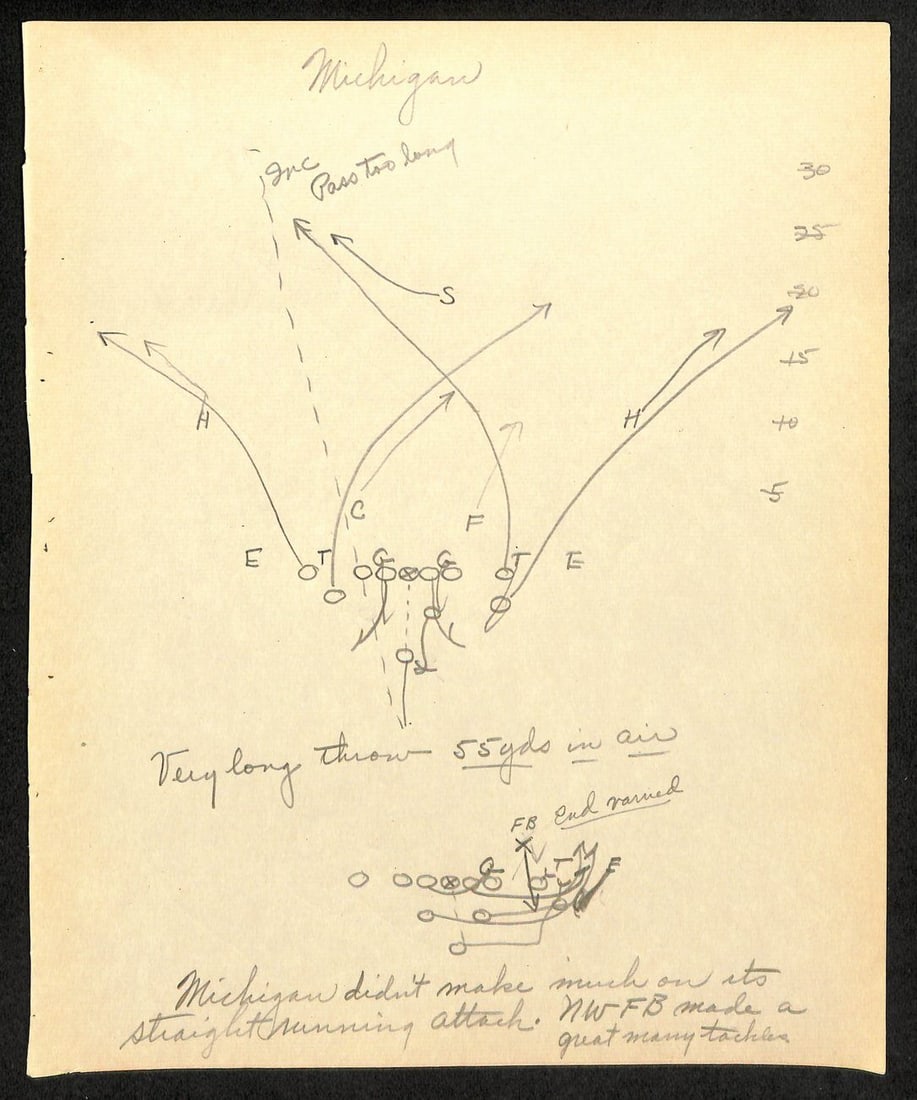 Michigan
Inc
Pass too long
30
25
20
15
10
5
S
H
H
C
F
E T G G T E
Very long throw 55 yds in air
FB End varied
G T E
Michigan didn't make much on its
straight running attack. NW FB made a
great many tackles